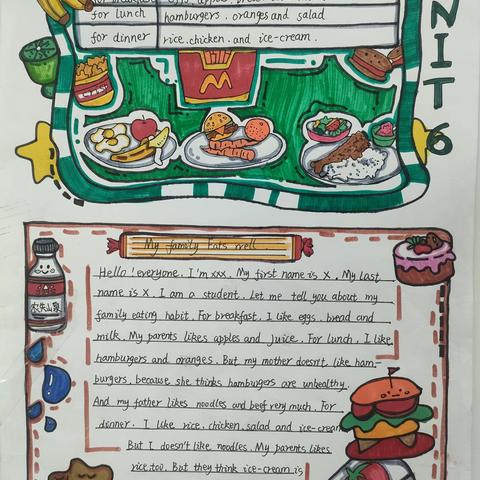 for lunch hamburgers. oranges and salad
for dinner rice. chicken. and ice-cream.
M
NIT 6
My family Eats well
Hello! everyone. I'm xxx. My first name is X. My last
name is X. I am a student. Let me tell you about my
family eating habit. For breakfast, I like eggs, bread and
milk. My parents likes apples and juice. For lunch, I like
hamburgers and oranges. But my mother doesn't like ham-
burgers, because she thinks hamburgers are unbealthy.
And my father likes noodles and beef very much. For
dinner. I like rice, chicken, salad and ice-cream
But I doesn't like noodles. My parents likes
rice, too. But they think ice-cream is